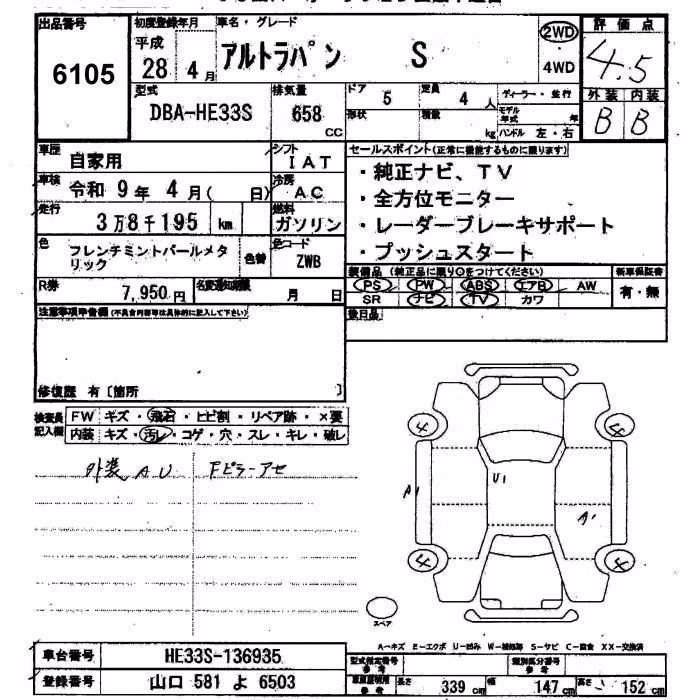 出品番号 6105
初度登録年月 平成 28 4月
車名・グレード アルトラパン S
2WD
4WD
評価点 4.5
型式 DBA-HE33S
排気量 658 CC
ドア 5
定員 4 人
形状
積数 kg
ディーラー・並行
モデル年式 年
ハンドル 左・右
外装 内装
B B
車歴 自家用
シフト IAT
車検 令和 9年 4月( 日)
冷房 AC
走行 3万8千195 km
燃料 ガソリン
色 フレンチミントパールメタリック
色替
色コード ZWB
R券 7,950円
名変通知期限 月 日
セールスポイント(正常に機能するものに限ります)
・純正ナビ、TV
・全方位モニター
・レーダーブレーキサポート
・プッシュスタート
装備品 (純正品に限り〇をつけてください)
新車保証書
PS PW ABS エアB AW
SR ナビ TV カワ
有・無
後日品
注意事項申告欄(不具合内容等は具体的に記入して下さい)
修復歴 有〔箇所 〕
検査員記入欄
FW キズ・飛石・ヒビ割・リペア跡・×要
内装 キズ・汚レ・コゲ・穴・スレ・キレ・破レ
外装 AU Fピラーアセ
4 4
U1
A1
A1
4 4
スペア
A-キズ E-エクボ U-凹み W-補修跡 S-サビ C-腐食 XX-交換済
車台番号 HE33S-136935
登録番号 山口 581 よ 6503
型式指定番号 参考
類別区分番号 参考
車両寸法 参考
長さ 339 cm
幅 147 cm
高さ 152 cm